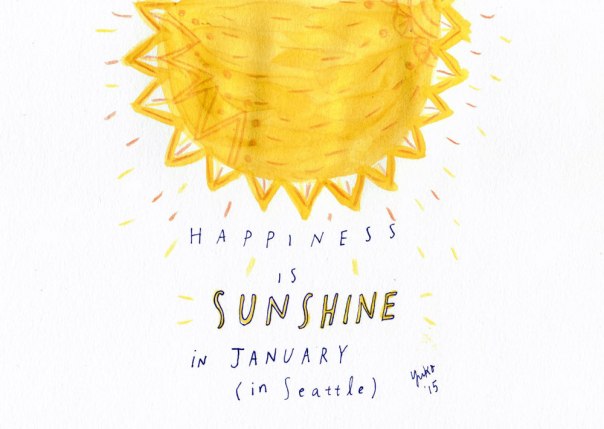 HAPPINESS
is
SUNSHINE
in JANUARY
(in Seattle)
Yuko
'15